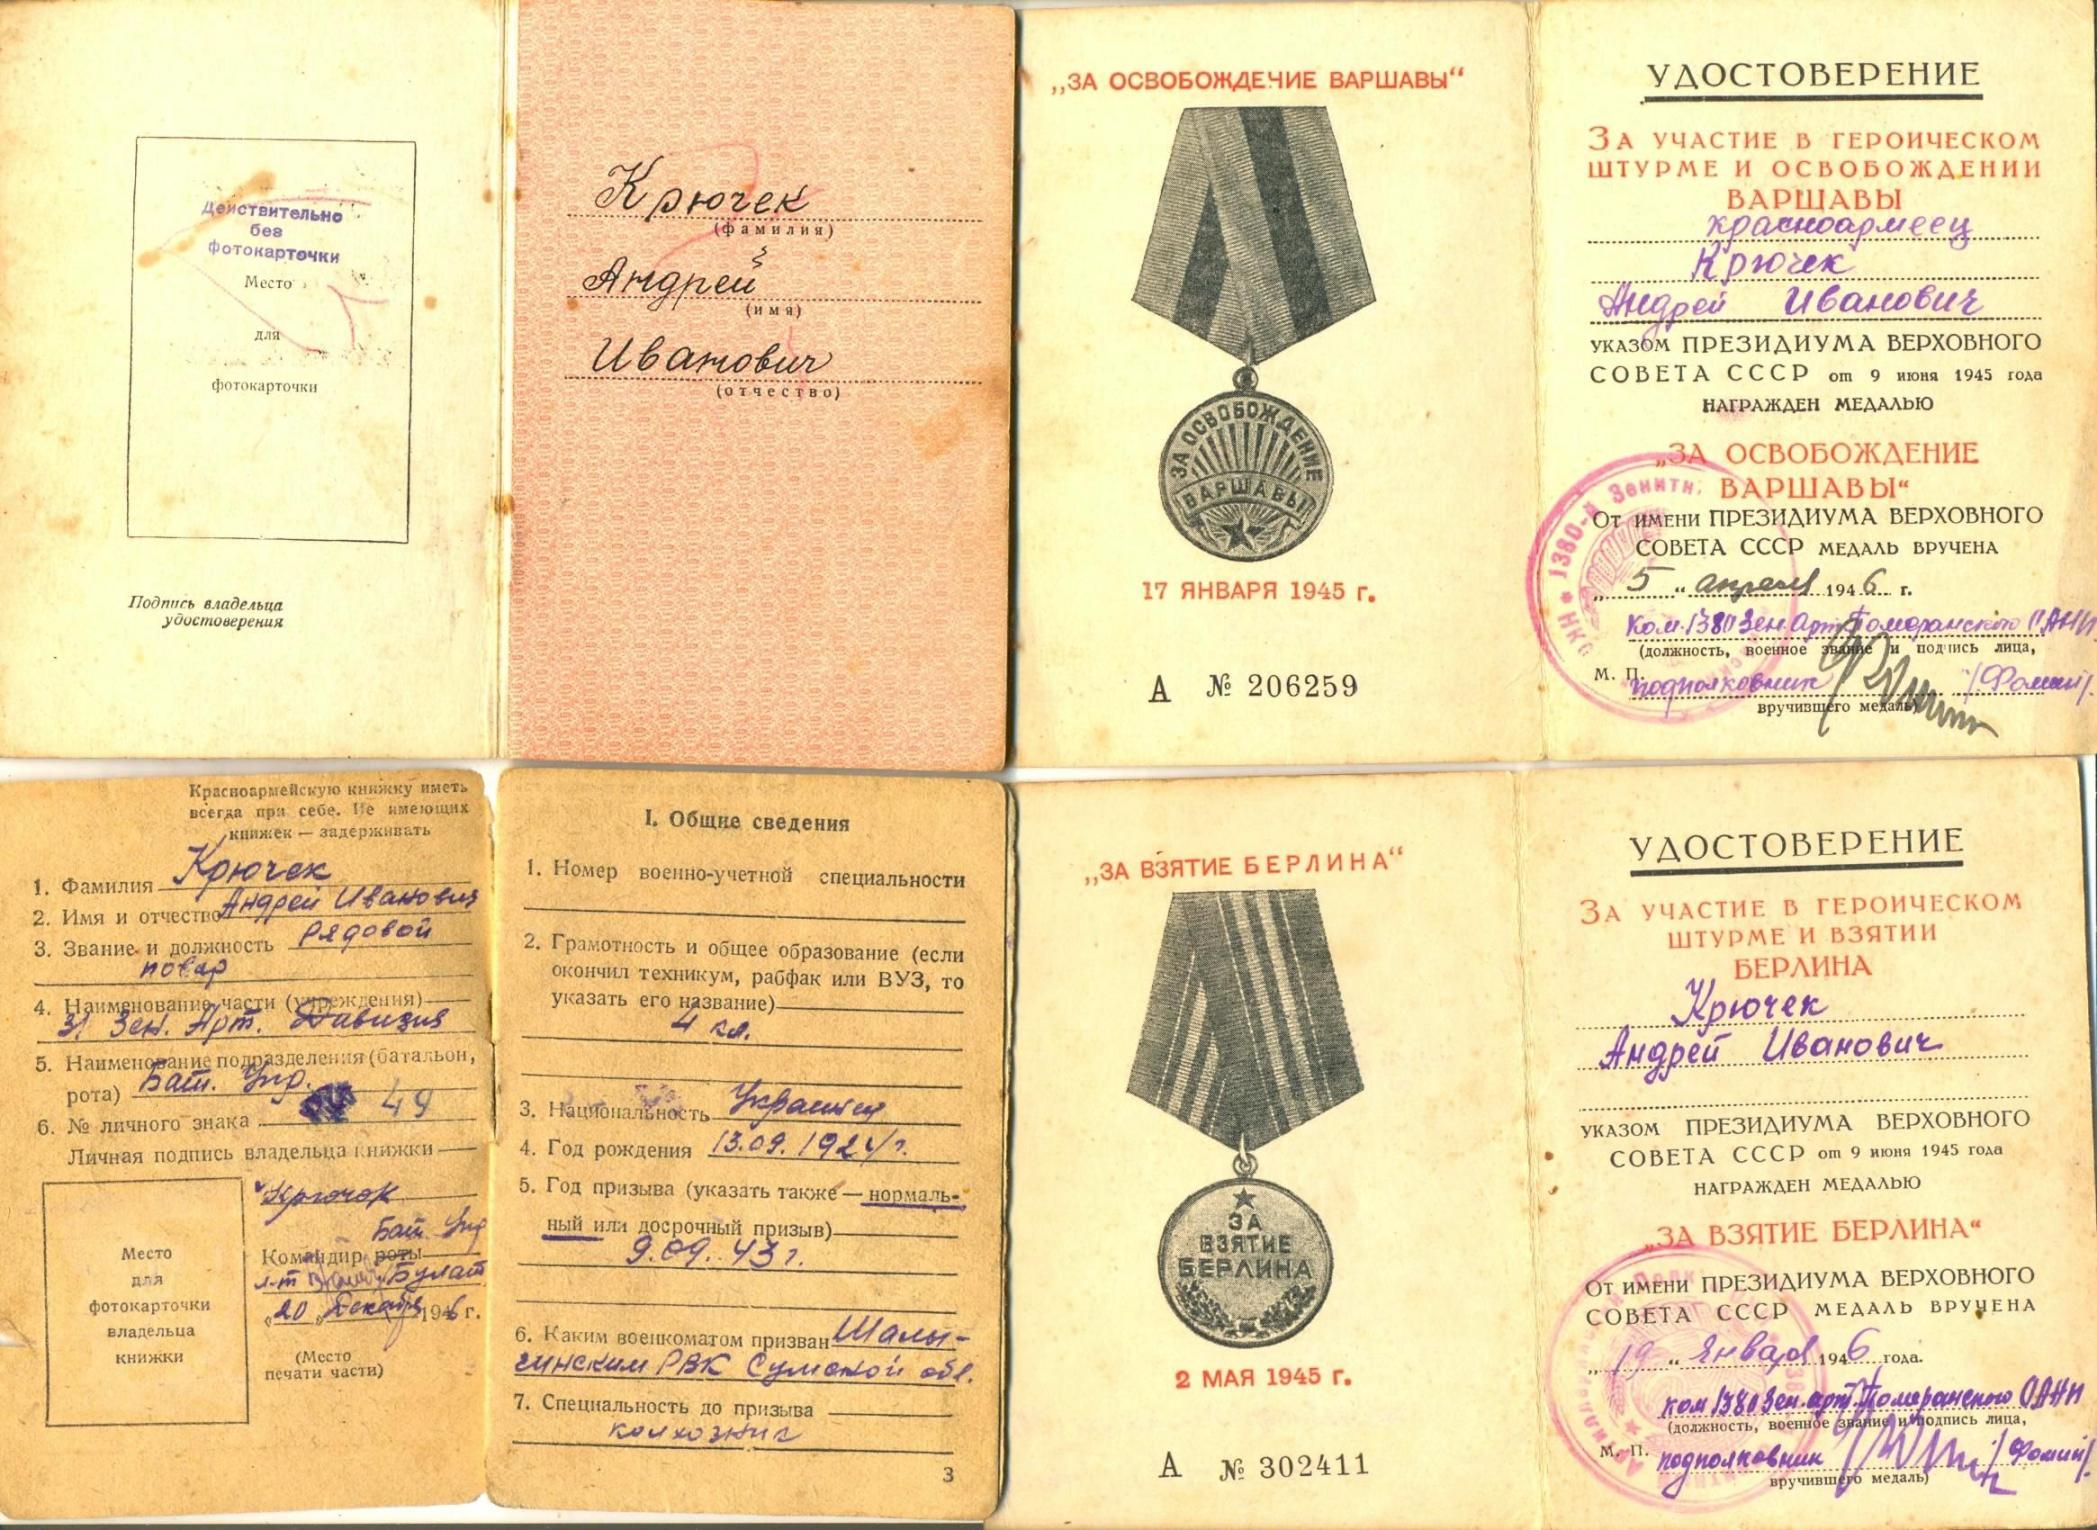 Действительно
без
фотокарточки
Место
для
фотокарточки
Подпись владельца
удостоверения
Крючек
(фамилия)
Андрей
(имя)
Иванович
(отчество)
„ЗА ОСВОБОЖДЕНИЕ ВАРШАВЫ“
ЗА ОСВОБОЖДЕНИЕ
ВАРШАВЫ
17 ЯНВАРЯ 1945 г.
А № 206259
УДОСТОВЕРЕНИЕ
ЗА УЧАСТИЕ В ГЕРОИЧЕСКОМ
ШТУРМЕ И ОСВОБОЖДЕНИИ
ВАРШАВЫ
красноармеец
Крючек
Андрей Иванович
УКАЗОМ ПРЕЗИДИУМА ВЕРХОВНОГО
СОВЕТА СССР от 9 июня 1945 года
НАГРАЖДЕН МЕДАЛЬЮ
„ЗА ОСВОБОЖДЕНИЕ
ВАРШАВЫ“
ОТ ИМЕНИ ПРЕЗИДИУМА ВЕРХОВНОГО
СОВЕТА СССР МЕДАЛЬ ВРУЧЕНА
„5“ апреля 1946 г.
Ком. 1380 Зен. Арт. Померанского П.
(должность, военное звание и подпись лица,
М. П. подполковник /Фомин/
вручившего медаль)
НКО * 1380-й Зенитн.
Красноармейскую книжку иметь
всегда при себе. Не имеющих
книжек — задерживать
1. Фамилия Крючек
2. Имя и отчество Андрей Иванович
3. Звание и должность Рядовой
повар
4. Наименование части (учреждения)
31 Зен. Арт. Дивизия
5. Наименование подразделения (батальон,
рота) Бат. Упр.
6. № личного знака 49
Личная подпись владельца книжки
Крючок
Бат. Упр
Командир роты
л-т Булат
„20„ Декабря 1946 г.
(Место
печати части)
Место
для
фотокарточки
владельца
книжки
I. Общие сведения
1. Номер военно-учетной специальности
2. Грамотность и общее образование (если
окончил техникум, рабфак или ВУЗ, то
указать его название)
4 кл.
3. Национальность Украинец
4. Год рождения 13.09.1924г.
5. Год призыва (указать также — нормаль-
ный или досрочный призыв)
9.09.43 г.
6. Каким военкоматом призван Шалы-
гинским РВК Сумской обл.
7. Специальность до призыва
колхозник
3
„ЗА ВЗЯТИЕ БЕРЛИНА“
ЗА
ВЗЯТИЕ
БЕРЛИНА
2 МАЯ 1945 г.
А № 302411
УДОСТОВЕРЕНИЕ
ЗА УЧАСТИЕ В ГЕРОИЧЕСКОМ
ШТУРМЕ И ВЗЯТИИ
БЕРЛИНА
Крючек
Андрей Иванович
УКАЗОМ ПРЕЗИДИУМА ВЕРХОВНОГО
СОВЕТА СССР от 9 июня 1945 года
НАГРАЖДЕН МЕДАЛЬЮ
„ЗА ВЗЯТИЕ БЕРЛИНА“
ОТ ИМЕНИ ПРЕЗИДИУМА ВЕРХОВНОГО
СОВЕТА СССР МЕДАЛЬ ВРУЧЕНА
„19“ Января 1946 года.
ком 1380 Зен. арт. Померанского П.
(должность, военное звание и подпись лица,
М. П. подполковник /Фомин/
вручившего медаль)